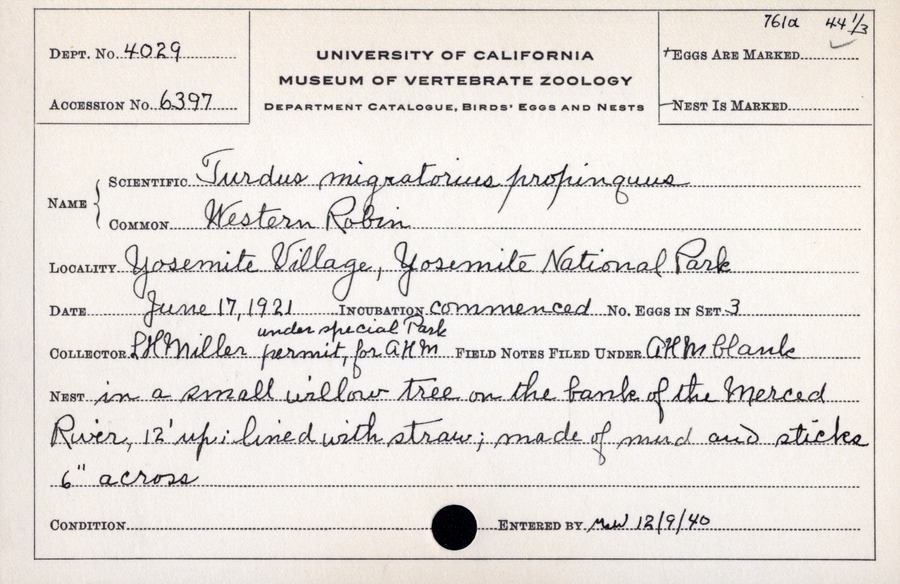 761a 44 1/3
Dept. No. 4029
Accession No. 6397
UNIVERSITY OF CALIFORNIA
MUSEUM OF VERTEBRATE ZOOLOGY
Department Catalogue, Birds' Eggs and Nests
Eggs Are Marked
Nest Is Marked
Name
Scientific Turdus migratorius propinquus
Common Western Robin
Locality Yosemite Village, Yosemite National Park
Date June 17, 1921 Incubation commenced No. Eggs in Set 3
under special Park
Collector LHMiller permit, for AHM Field Notes Filed Under AHM blank
Nest in a small willow tree on the bank of the Merced
River, 12' up; lined with straw; made of mud and sticks
6" across
Condition
Entered by 12/9/40